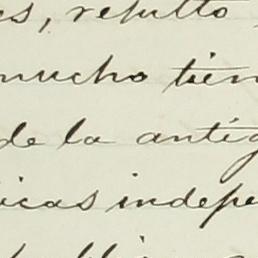 es, resultó
mucho tiem
de la antig
icas indepe